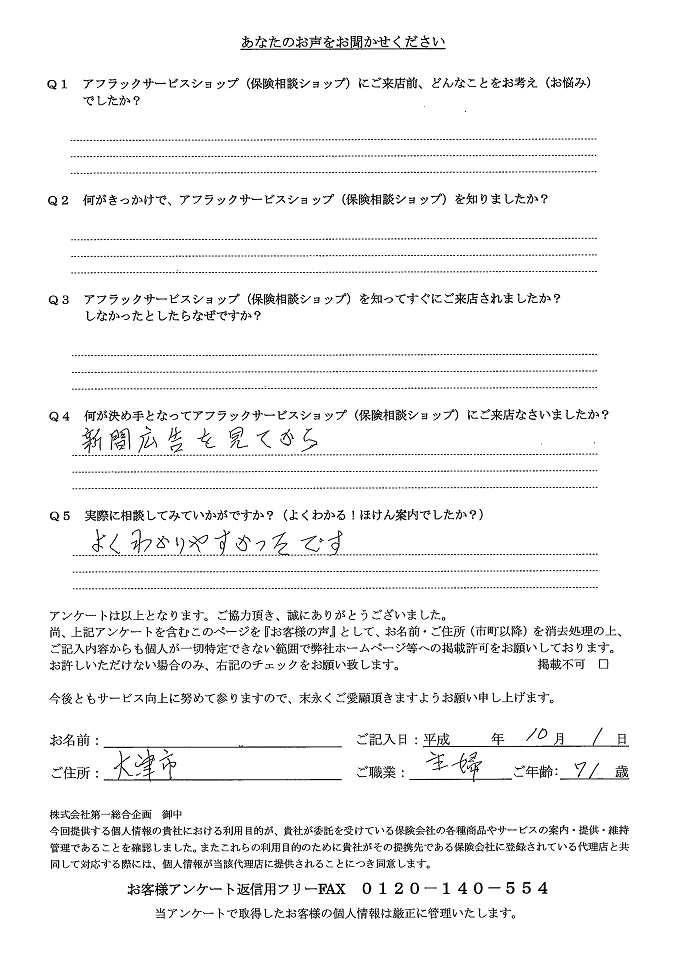 あなたのお声をお聞かせください
Q1 アフラックサービスショップ（保険相談ショップ）にご来店前、どんなことをお考え（お悩み）
でしたか？
Q2 何がきっかけで、アフラックサービスショップ（保険相談ショップ）を知りましたか？
Q3 アフラックサービスショップ（保険相談ショップ）を知ってすぐにご来店されましたか？
しなかったとしたらなぜですか？
Q4 何が決め手となってアフラックサービスショップ（保険相談ショップ）にご来店なさいましたか？
新聞広告を見てから
Q5 実際に相談してみていかがですか？（よくわかる！ほけん案内でしたか？）
よくわかりやすかったです
アンケートは以上となります。ご協力頂き、誠にありがとうございました。
尚、上記アンケートを含むこのページを『お客様の声』として、お名前・ご住所（市町以降）を消去処理の上、
ご記入内容からも個人が一切特定できない範囲で弊社ホームページ等への掲載許可をお願いしております。
お許しいただけない場合のみ、右記のチェックをお願い致します。 掲載不可 □
今後ともサービス向上に努めて参りますので、末永くご愛顧頂きますようお願い申し上げます。
お名前： ご記入日：平成 年 10月 1日
ご住所：大津市 ご職業：主婦 ご年齢：71歳
株式会社第一総合企画 御中
今回提供する個人情報の貴社における利用目的が、貴社が委託を受けている保険会社の各種商品やサービスの案内・提供・維持
管理であることを確認しました。またこれらの利用目的のために貴社がその提携先である保険会社に登録されている代理店と共
同して対応する際には、個人情報が当該代理店に提供されることにつき同意します。
お客様アンケート返信用フリーFAX 0120－140－554
当アンケートで取得したお客様の個人情報は厳正に管理いたします。